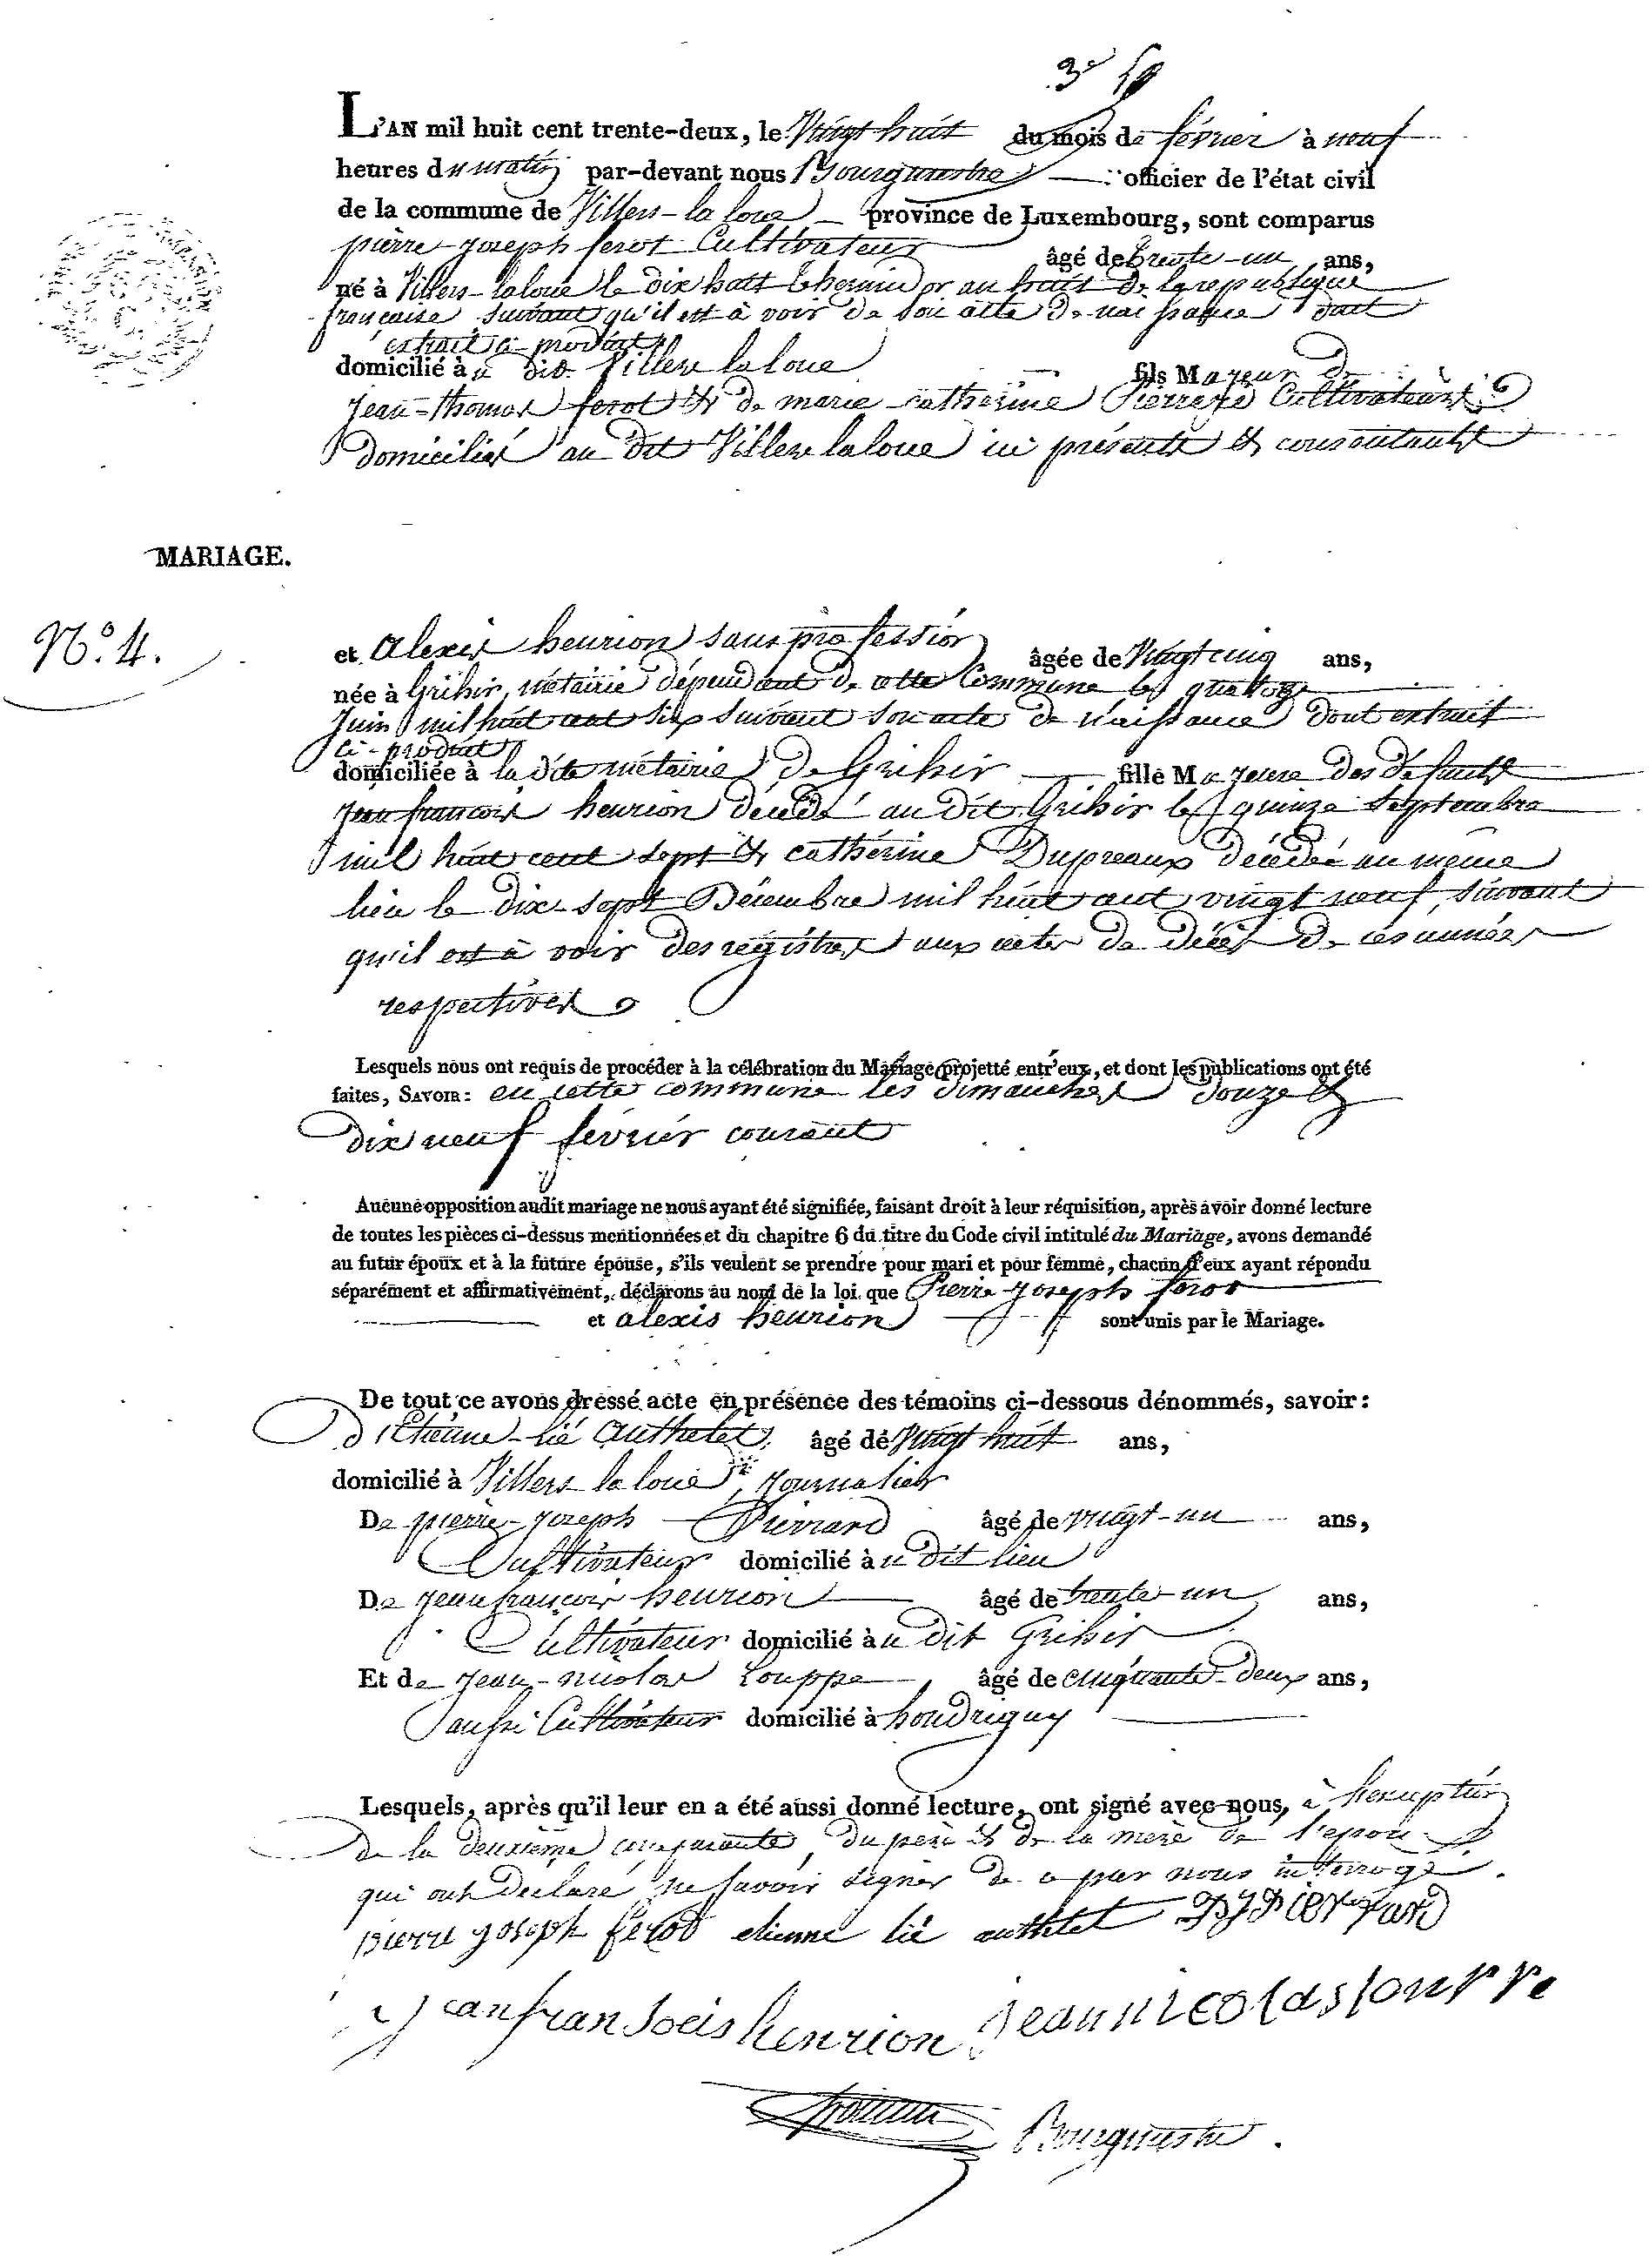 L'AN mil huit cent trente-deux, le Vingt huit du mois de février à neuf
heures du matin par-devant nous Bourgmestre officier de l'état civil
de la commune de Villers-la loue province de Luxembourg, sont comparus
pierre-joseph ferot Cultivateur âgé de trente-un ans,
né à Villers-laloue le dix huit thermidor an huit de la republique
française suivant qu'il est à voir de son acte de naissance dont
extrait ci-produit
domicilié au dit Villers laloue fils Majeur de
Jean-thomas ferot & de marie catherine Cultivateurs
domiciliés au dit Villers laloue ici présents & consentants
MARIAGE.
N.º 4.
et Alexis henrion sans profession âgée de Vingt cinq ans,
née à Grihir, métairie dépendant de cette Commune le quatorze
Juin mil huit cent six suivant son acte de naissance dont extrait
ci-produit
domiciliée à la dite métairie de Grihir fille Majeure des défunts
Jean françois henrion décédé au dit Grihir le quinze septembre
mil huit cent sept & cathérine Dupreaux décédée au même
lieu le dix-sept Décembre mil huit cent vingt neuf, suivant
qu'il est à voir des registres aux actes de décès de ces années
respectives
Lesquels nous ont requis de procéder à la célébration du Mariage projetté entr'eux, et dont les publications ont été
faites, SAVOIR: en cette commune les dimanches douze &
dix neuf février courant
Aucune opposition audit mariage ne nous ayant été signifiée, faisant droit à leur réquisition, après avoir donné lecture
de toutes les pièces ci-dessus mentionnées et du chapitre 6 du titre du Code civil intitulé du Mariage, avons demandé
au futur époux et à la future épouse, s'ils veulent se prendre pour mari et pour femme, chacun d'eux ayant répondu
séparément et affirmativement, déclarons au nom de la loi que Pierre Joseph ferot
et alexis henrion sont unis par le Mariage.
De tout ce avons dressé acte en présence des témoins ci-dessous dénommés, savoir:
d'Etienne-lié Authelet, âgé de Vingt huit ans,
domicilié à Villers la loue, Journalier
De pierre-joseph Pierrard âgé de vingt-un ans,
Cultivateur domicilié au dit lieu
De Jean françois henrion âgé de trente un ans,
Cultivateur domicilié au dit Grihir
Et de Jean-nicolas Louppe, âgé de cinquante-deux ans,
aussi Cultivateur domicilié à houdrigny
Lesquels, après qu'il leur en a été aussi donné lecture, ont signé avec nous, à l'exception
de la deuxième comparante, du père & de la mère de l'époux
qui ont déclaré ne savoir signer de ce par nous interrogé.
pierre joseph ferot etienne lié authelet PJPierrard
jean fransois henrion jean nicolas louppe
Bourgmestre.